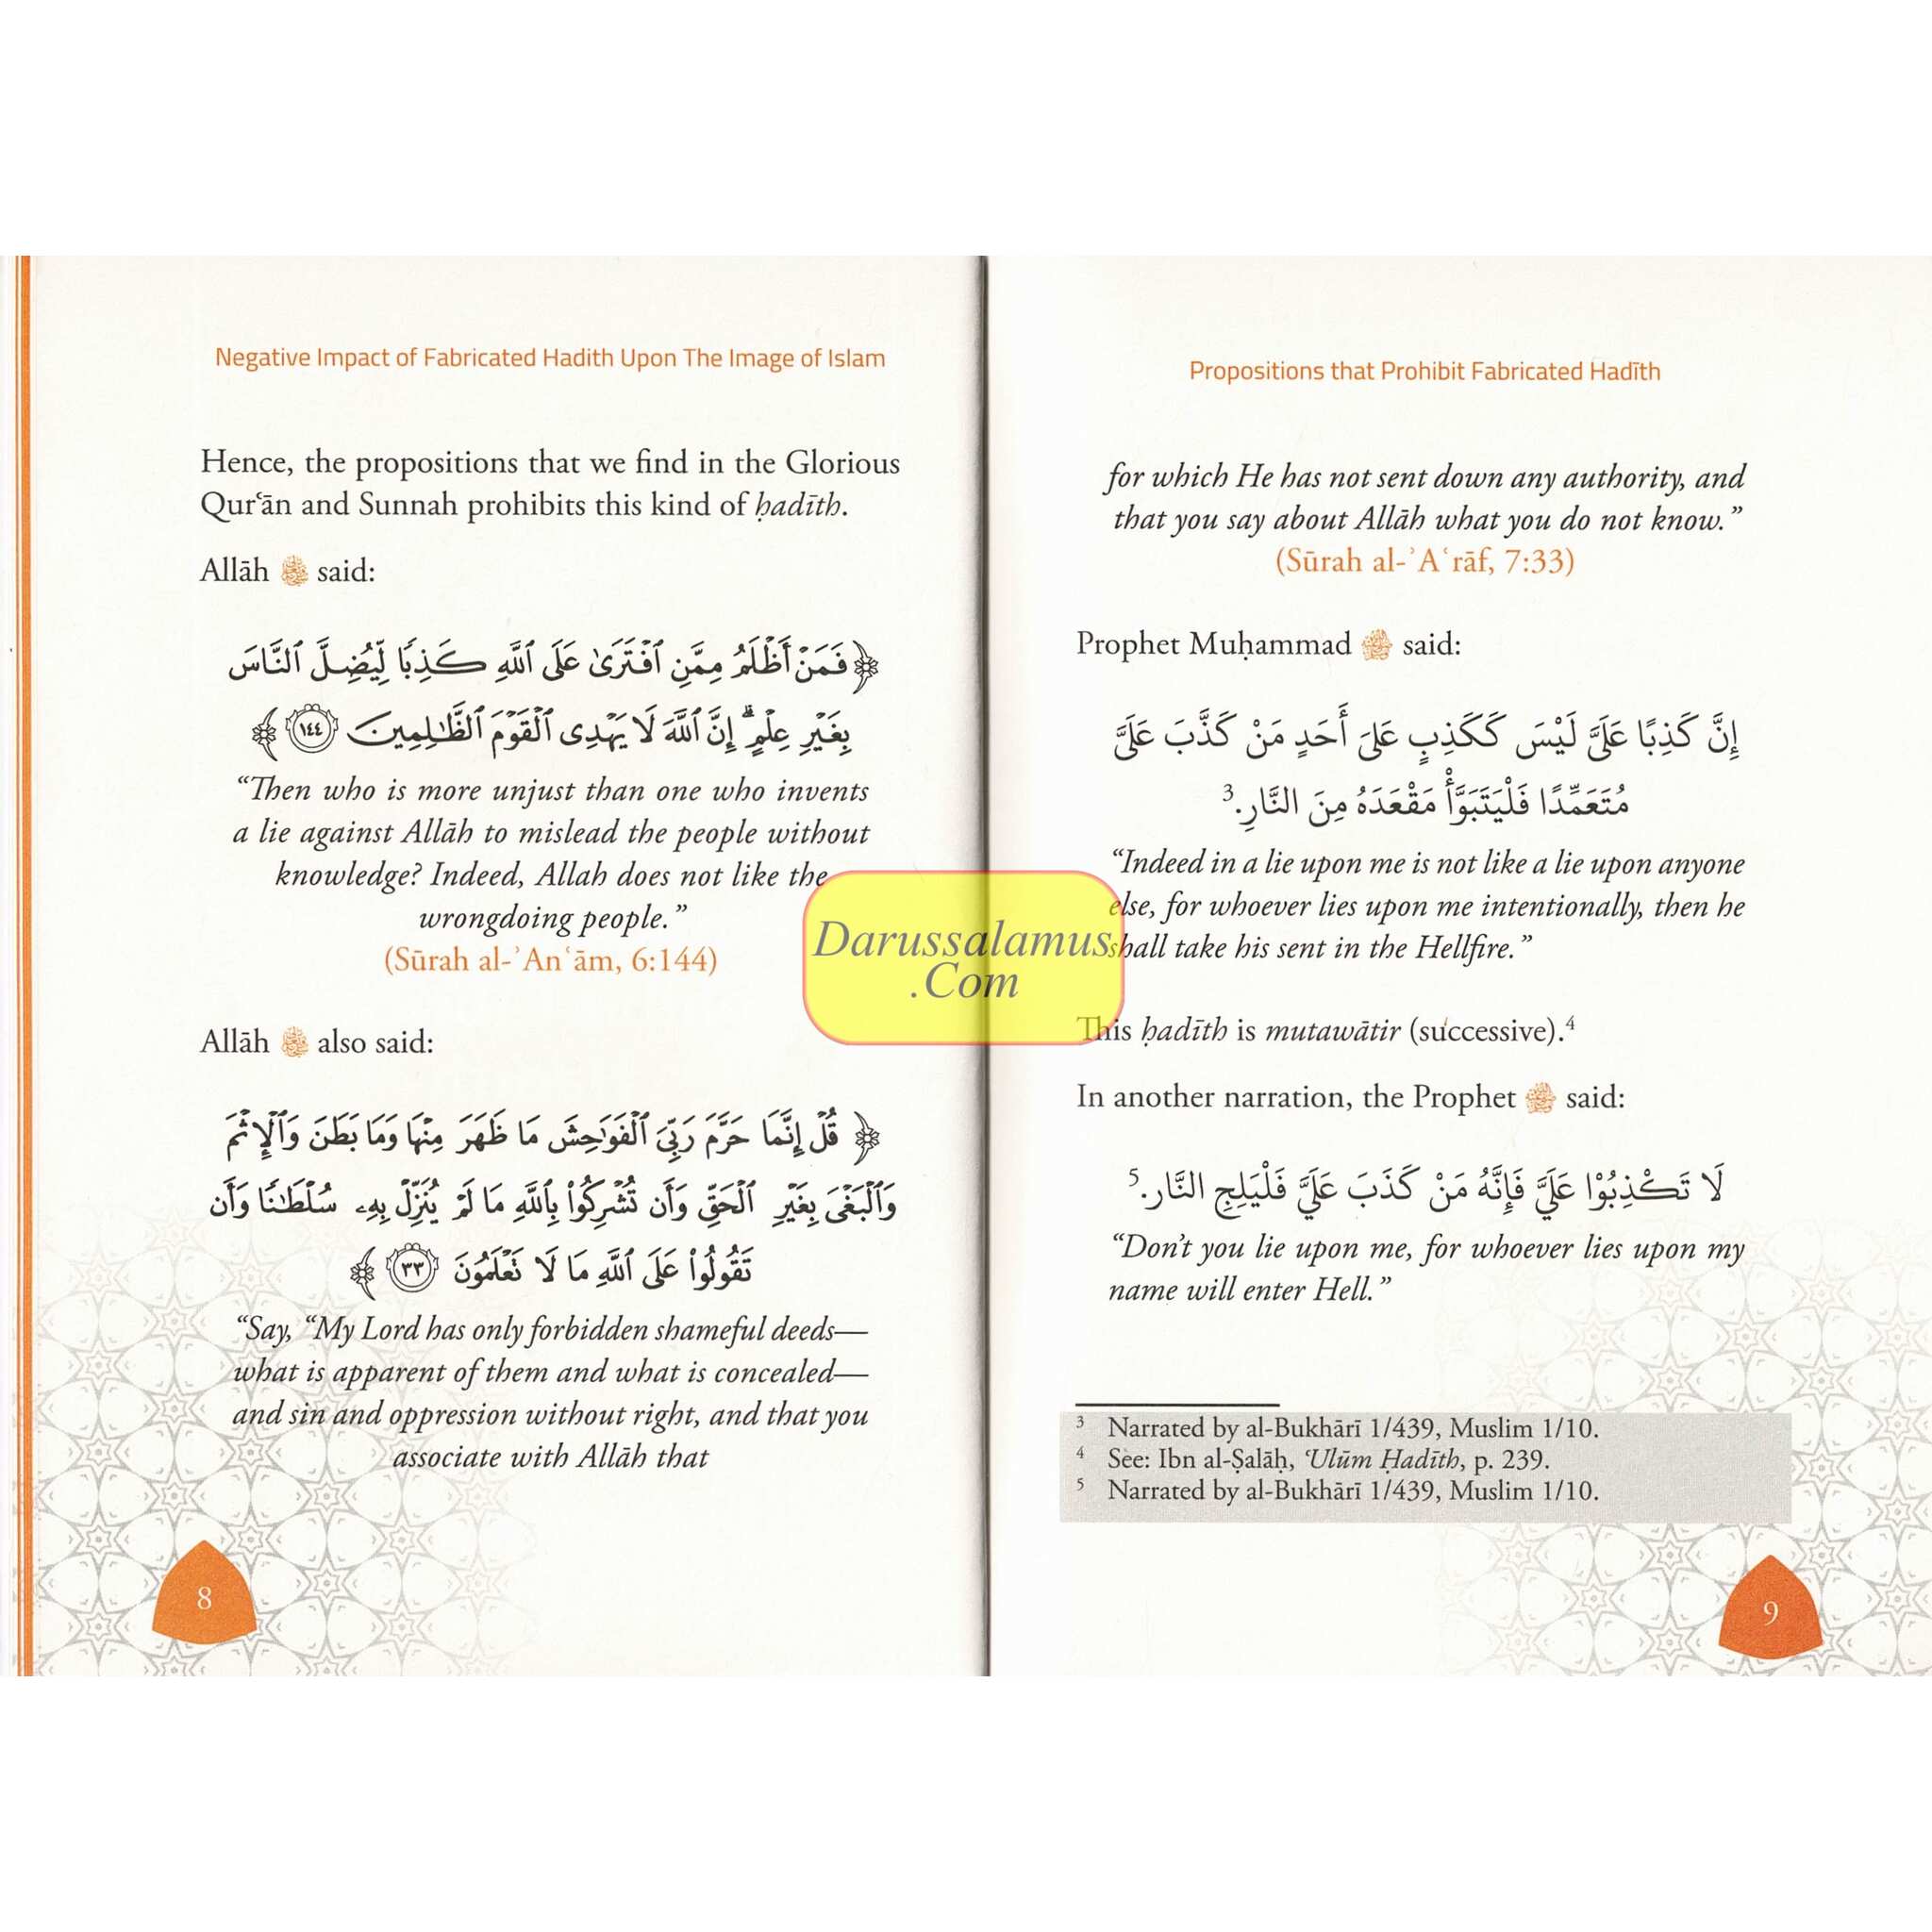 Negative Impact of Fabricated Hadith Upon The Image of Islam
Hence, the propositions that we find in the Glorious
Qurʿān and Sunnah prohibits this kind of ḥadīth.
Allāh ﷻ said:
﴿فَمَنْ أَظْلَمُ مِمَّنِ ٱفْتَرَىٰ عَلَى ٱللَّهِ كَذِبًا لِّيُضِلَّ ٱلنَّاسَ
بِغَيْرِ عِلْمٍ ۗ إِنَّ ٱللَّهَ لَا يَهْدِى ٱلْقَوْمَ ٱلظَّـٰلِمِينَ ١٤٤﴾
“Then who is more unjust than one who invents
a lie against Allāh to mislead the people without
knowledge? Indeed, Allah does not like the
wrongdoing people.”
(Sūrah al-ʾAnʿām, 6:144)
Allāh ﷻ also said:
﴿قُلْ إِنَّمَا حَرَّمَ رَبِّىَ ٱلْفَوَٰحِشَ مَا ظَهَرَ مِنْهَا وَمَا بَطَنَ وَٱلْإِثْمَ
وَٱلْبَغْىَ بِغَيْرِ ٱلْحَقِّ وَأَن تُشْرِكُوا۟ بِٱللَّهِ مَا لَمْ يُنَزِّلْ بِهِۦ سُلْطَـٰنًا وَأَن
تَقُولُوا۟ عَلَى ٱللَّهِ مَا لَا تَعْلَمُونَ ٣٣﴾
“Say, “My Lord has only forbidden shameful deeds—
what is apparent of them and what is concealed—
and sin and oppression without right, and that you
associate with Allāh that
8
Propositions that Prohibit Fabricated Hadīth
for which He has not sent down any authority, and
that you say about Allāh what you do not know.”
(Sūrah al-ʾAʿrāf, 7:33)
Prophet Muḥammad ﷺ said:
إِنَّ كَذِبًا عَلَيَّ لَيْسَ كَكَذِبٍ عَلىَ أَحَدٍ مَنْ كَذَّبَ عَلَيَّ
مُتَعَمِّدًا فَلْيَتَبَوَّأْ مَقْعَدَهُ مِنَ النَّارِ.3
“Indeed in a lie upon me is not like a lie upon anyone
else, for whoever lies upon me intentionally, then he
shall take his sent in the Hellfire.”
This ḥadīth is mutawātir (successive).4
In another narration, the Prophet ﷺ said:
لَا تَكْذِبُوْا عَلَيَّ فَإِنَّهُ مَنْ كَذَبَ عَلَيَّ فَلْيَلِجِ النَّار.5
“Don’t you lie upon me, for whoever lies upon my
name will enter Hell.”
3 Narrated by al-Bukhārī 1/439, Muslim 1/10.
4 See: Ibn al-Ṣalāḥ, ʿUlūm Ḥadīth, p. 239.
5 Narrated by al-Bukhārī 1/439, Muslim 1/10.
9
Darussalamus
.Com